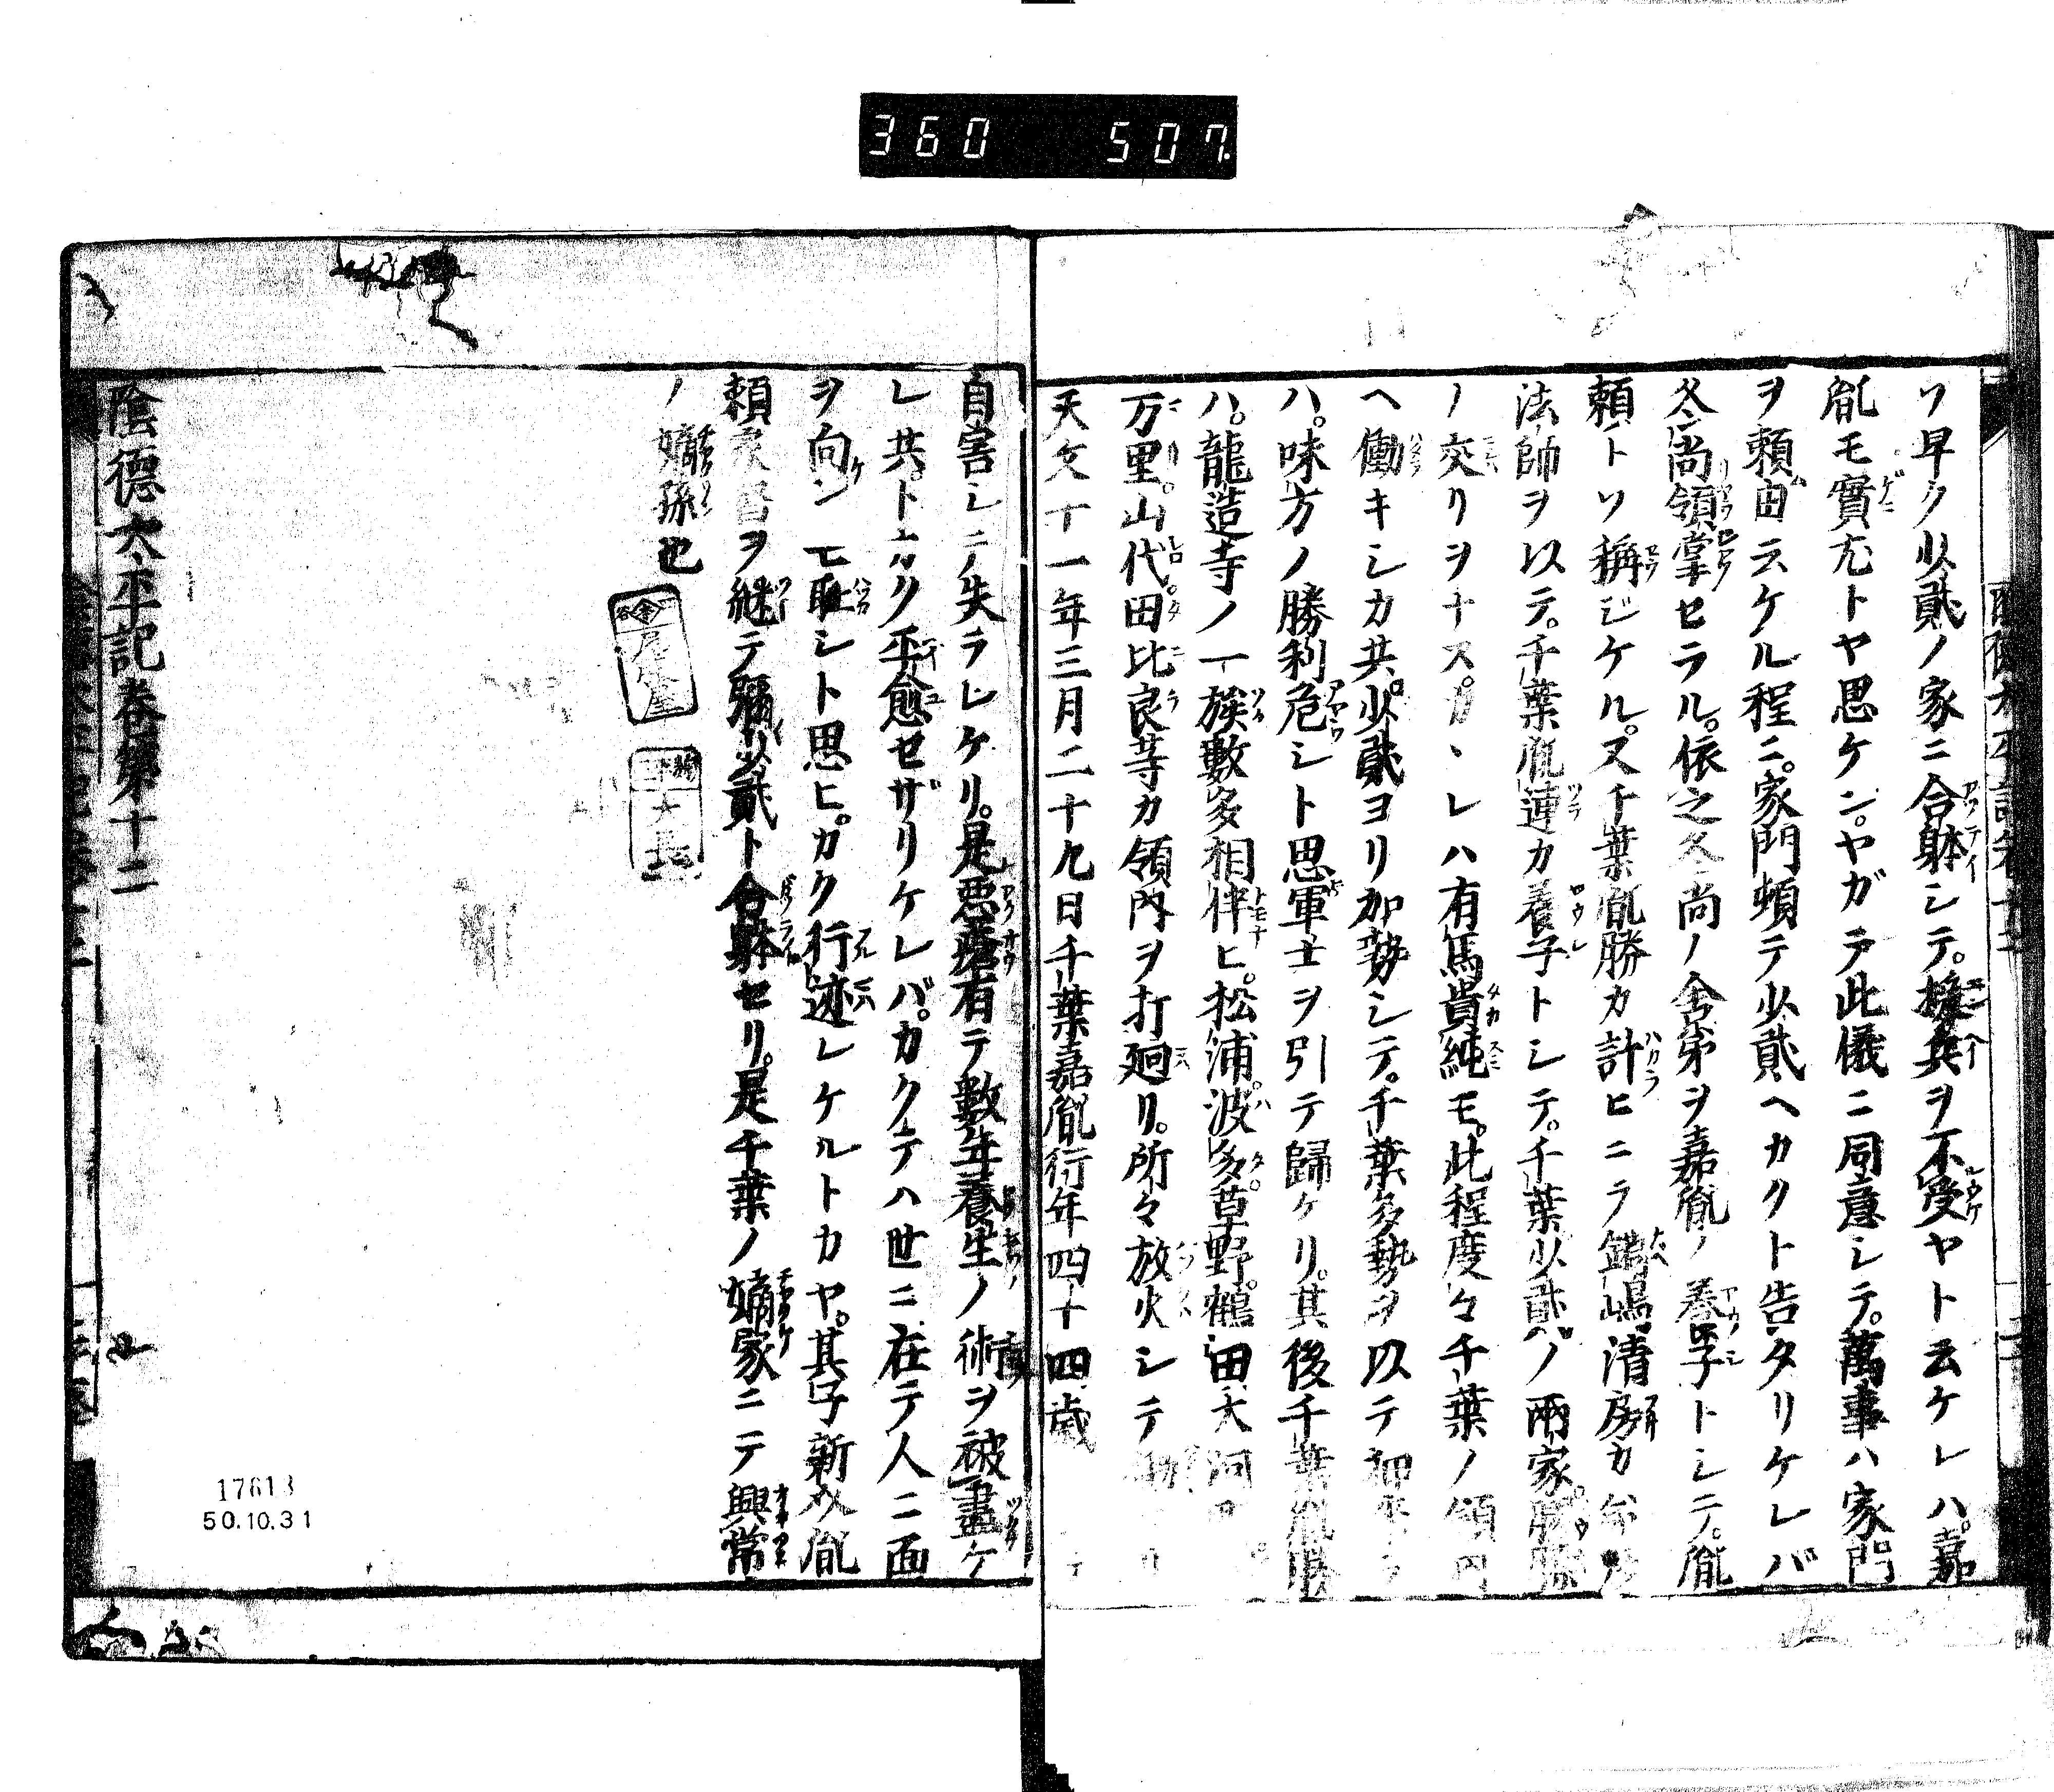 360 507
ソ早ク少貳ノ家ニ合躰シテ。援兵ヲ不受ヤト云ケレハ。嘉
胤モ實尤トヤ思ケン。ヤガテ此儀ニ同意シテ。萬事ハ家門
ヲ頼由云ケル程ニ。家門頓テ少貳ヘカクト告タリケレバ
冬尚領掌セラル。依之冬尚ノ舎弟ヲ嘉胤ノ養子トシテ。胤
頼トソ稱ジケル。又千葉胤勝カ計ヒニテ鍋嶋清房カ
法師ヲ以テ。千葉胤連カ養子トシテ。千葉少貳ノ兩家
ノ交リヲナス。カヽレハ有馬貴純モ。此程度々千葉ノ領内
ヘ働キシカ共。少貳ヨリ加勢シテ。千葉多勢ヲ以テ
ハ。味方ノ勝利危シト思軍士ヲ引テ歸ケリ。其後千葉胤勝
ハ。龍造寺ノ一族數多相伴ヒ。松浦波多草野。鶴田大河
万里。山代田比良等カ領内ヲ打廻リ。所々放火シテ
天文十一年三月二十九日千葉嘉胤行年四十四歳
自害シテ失ラレケリ。是悪瘡有テ數年養生ノ術ヲ被盡ケ
レ共。トカク平愈セザリケレバ。カクテハ世ニ在テ人ニ面
ヲ向ンモ耻シト思ヒ。カク行迹シケルトカヤ。其子新介胤
頼家督ヲ継テ彌少貳ト合躰セリ。是千葉ノ嫡家ニテ興常
ノ嫡孫也
陰德太平記巻第十二
17613
50.10.31